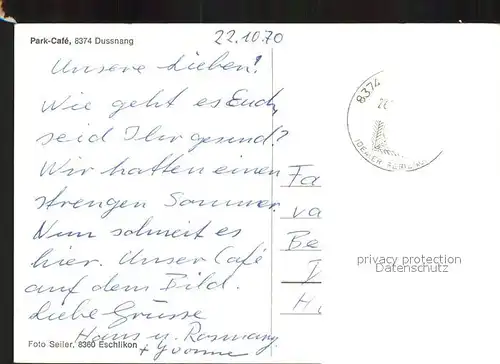 Park-Café, 8374 Dussnang
22.10.70
Unsere Lieben!
Wie geht es Euch,
seid Ihr gesund?
Wir hatten einen
strengen Sommer.
Nun schneit es
hier. Unser Café
auf dem Bild.
Liebe Grüsse
Hans u. Rosmary
+ Yvonne
Foto Seiler, 8360 Eschlikon
8374
Fa
va
Be
privacy protection
Datenschutz